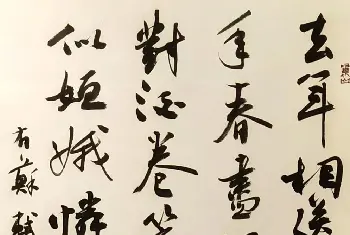 去年相送
年春盡
對酒卷
似姮娥憐
右蘇軾